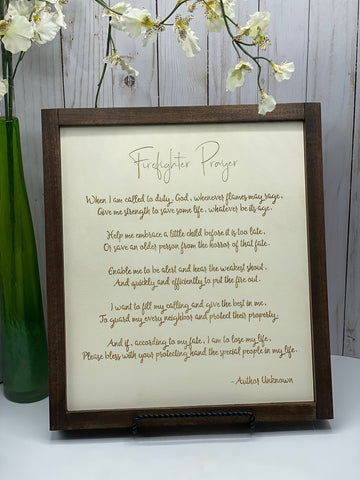 Firefighter Prayer
When I am called to duty, God, whenever flames may rage,
Give me strength to save some life, whatever be its age.
Help me embrace a little child before it is too late,
Or save an older person from the horror of that fate.
Enable me to be alert and hear the weakest shout,
And quickly and efficiently to put the fire out.
I want to fill my calling and give the best in me,
To guard my every neighbor and protect their property.
And if, according to my fate, I am to lose my life,
Please bless with your protecting hand the special people in my life.
- Author Unknown